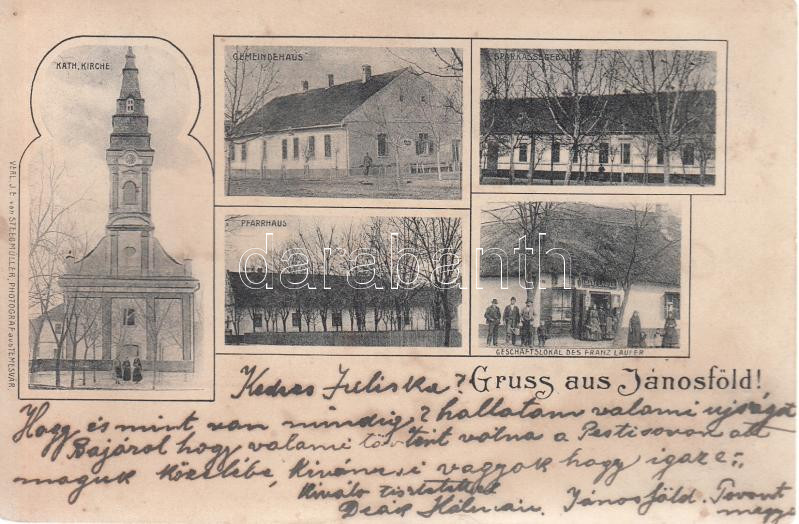 KATH. KIRCHE
GEMEINDEHAUS
SPARKASSEGEBÄUDE
PFARRHAUS
GESCHÄFTSLOKAL DES FRANZ LAUFER
VERL. J. E. von STEEGMÜLLER, PHOTOGRAF aus TEMESVÁR.
darabanth
Gruss aus Jánosföld!
Kedves Juliska?
Hogy és mint van mindig? hallottam valami ujságot
Bajáról hogy valami történt volna a
maguk közelébe, kiváncsi vagyok hogy igaz e-
Kiváló tisztelettel
Deák Kálmán. Jánosföld. Toront
megye